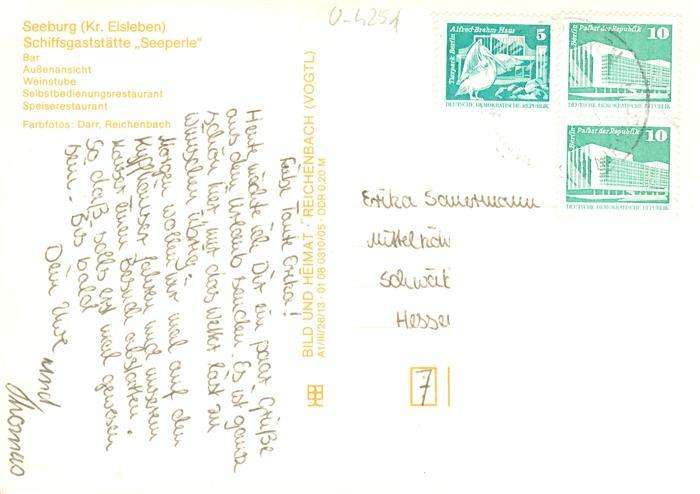 Seeburg (Kr. Eisleben)
Schiffsgaststätte „Seeperle"
Bar
Außenansicht
Weinstube
Selbstbedienungsrestaurant
Speiserestaurant
Farbfotos: Darr, Reichenbach
Liebe Tante Erika!
Heut möchte ich Dir ein paar Grüße
aus dem Urlaub senden. Es ist ganz
schön hier nur das Wetter läßt zu
wünschen übrig.
Morgen wollen wir mal auf den
Kyffhäuser fahren und unserem
Kaiser einen Besuch abstatten.
So, daß solls erst mal gewesen
sein. Bis bald
Dein Uwe und
Thomas
BILD UND HEIMAT · REICHENBACH (VOGTL)
A1/III/26/13 · 01 08 0310/05 · DDR 0,20 M
0-4251
Alfred-Brehm-Haus
5
Tierpark Berlin
DEUTSCHE DEMOKRATISCHE REPUBLIK
Palast der Republik
10
Berlin
DEUTSCHE DEMOKRATISCHE REPUBLIK
Palast der Republik
10
Berlin
DEUTSCHE DEMOKRATISCHE REPUBLIK
Erika Sauermann
7